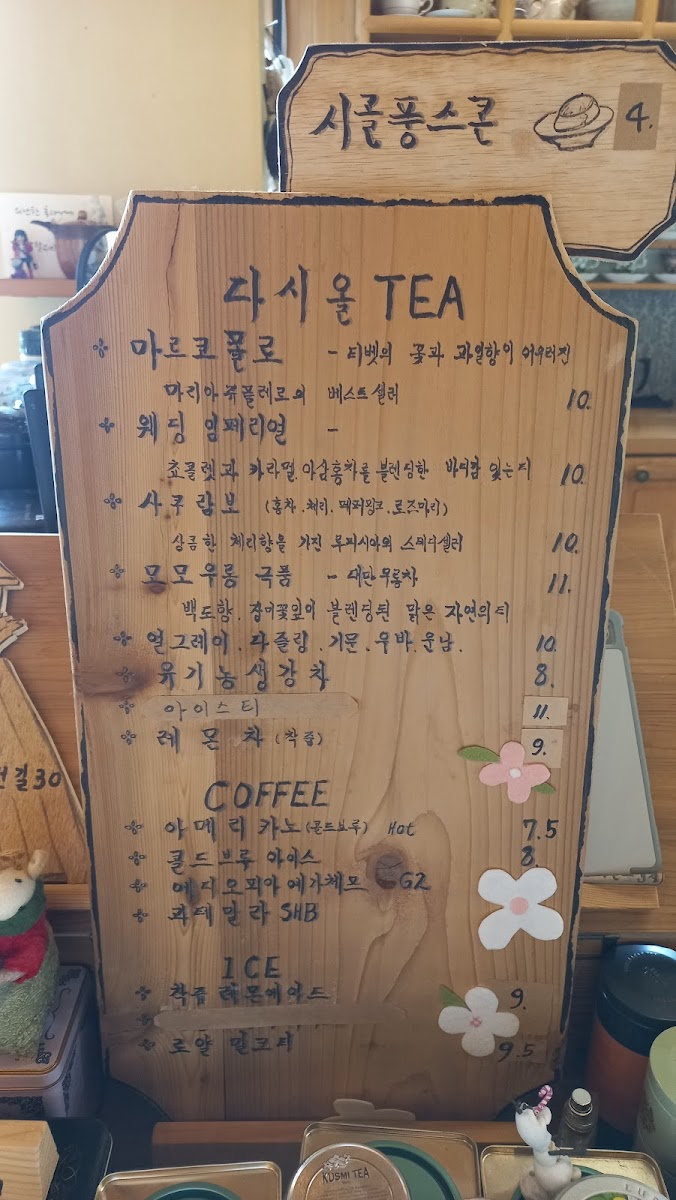 시골풍스콘 4.
다시올 TEA
마르코폴로 - 티벳의 꽃과 과일향이 어우러진
마리아쥬플레르의 베스트셀러 10.
웨딩 임페리얼 -
쵸콜렛과 카라멜.아삼홍차를 블렌딩한 바디감 있는티 10.
사쿠람보 (홍차.체리.페퍼핑크.로즈마리)
상큼한 체리향을 가진 루피시아의 스테디셀러 10.
모모우롱 극품 - 대만우롱차 11.
백도향.잡이꽃잎이 블렌딩된 맑은 자연의티
얼그레이.다즐링.기문.우바.운남. 10.
유기농생강차 8.
아이스티 11.
레몬차 (착즙) 9.
COFFEE
아메리카노(콜드브루) Hot 7.5
콜드브루 아이스 8.
에디오피아 예가체프 G2
과테말라 SHB
ICE
착즙 레몬에이드 9.
로얄 밀크티 9.5
길30
KUSMI TEA